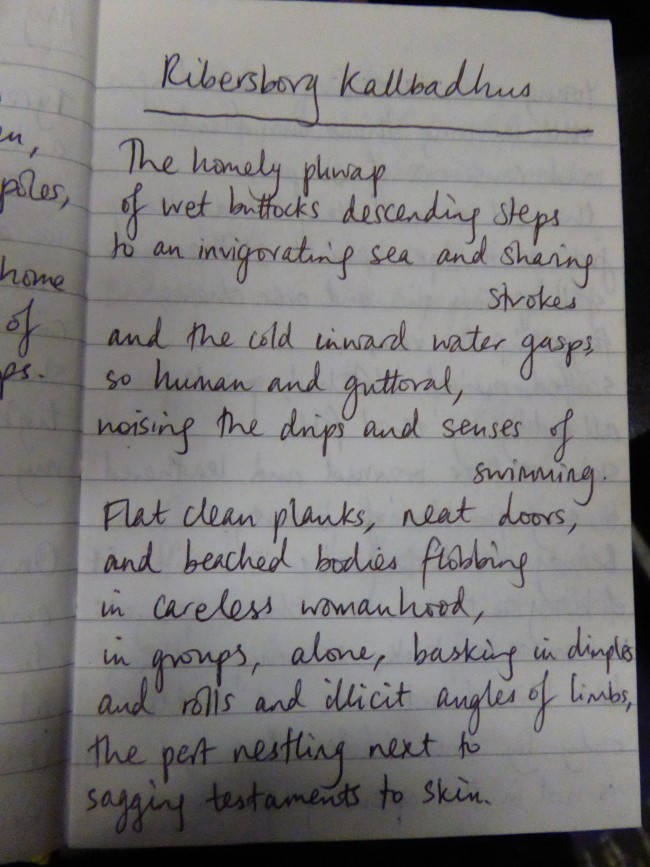 en,
poles,
home
of
ps.
Ribersborg Kallbadhus
The homely phwap
of wet buttocks descending steps
to an invigorating sea and sharing
strokes
and the cold inward water gasps,
so human and guttoral,
noising the drips and senses of
swimming.
Flat clean planks, neat doors,
and beached bodies flobbing
in careless womanhood,
in groups, alone, basking in dimples
and rolls and illicit angles of limbs,
the pert nestling next to
sagging testaments to skin.